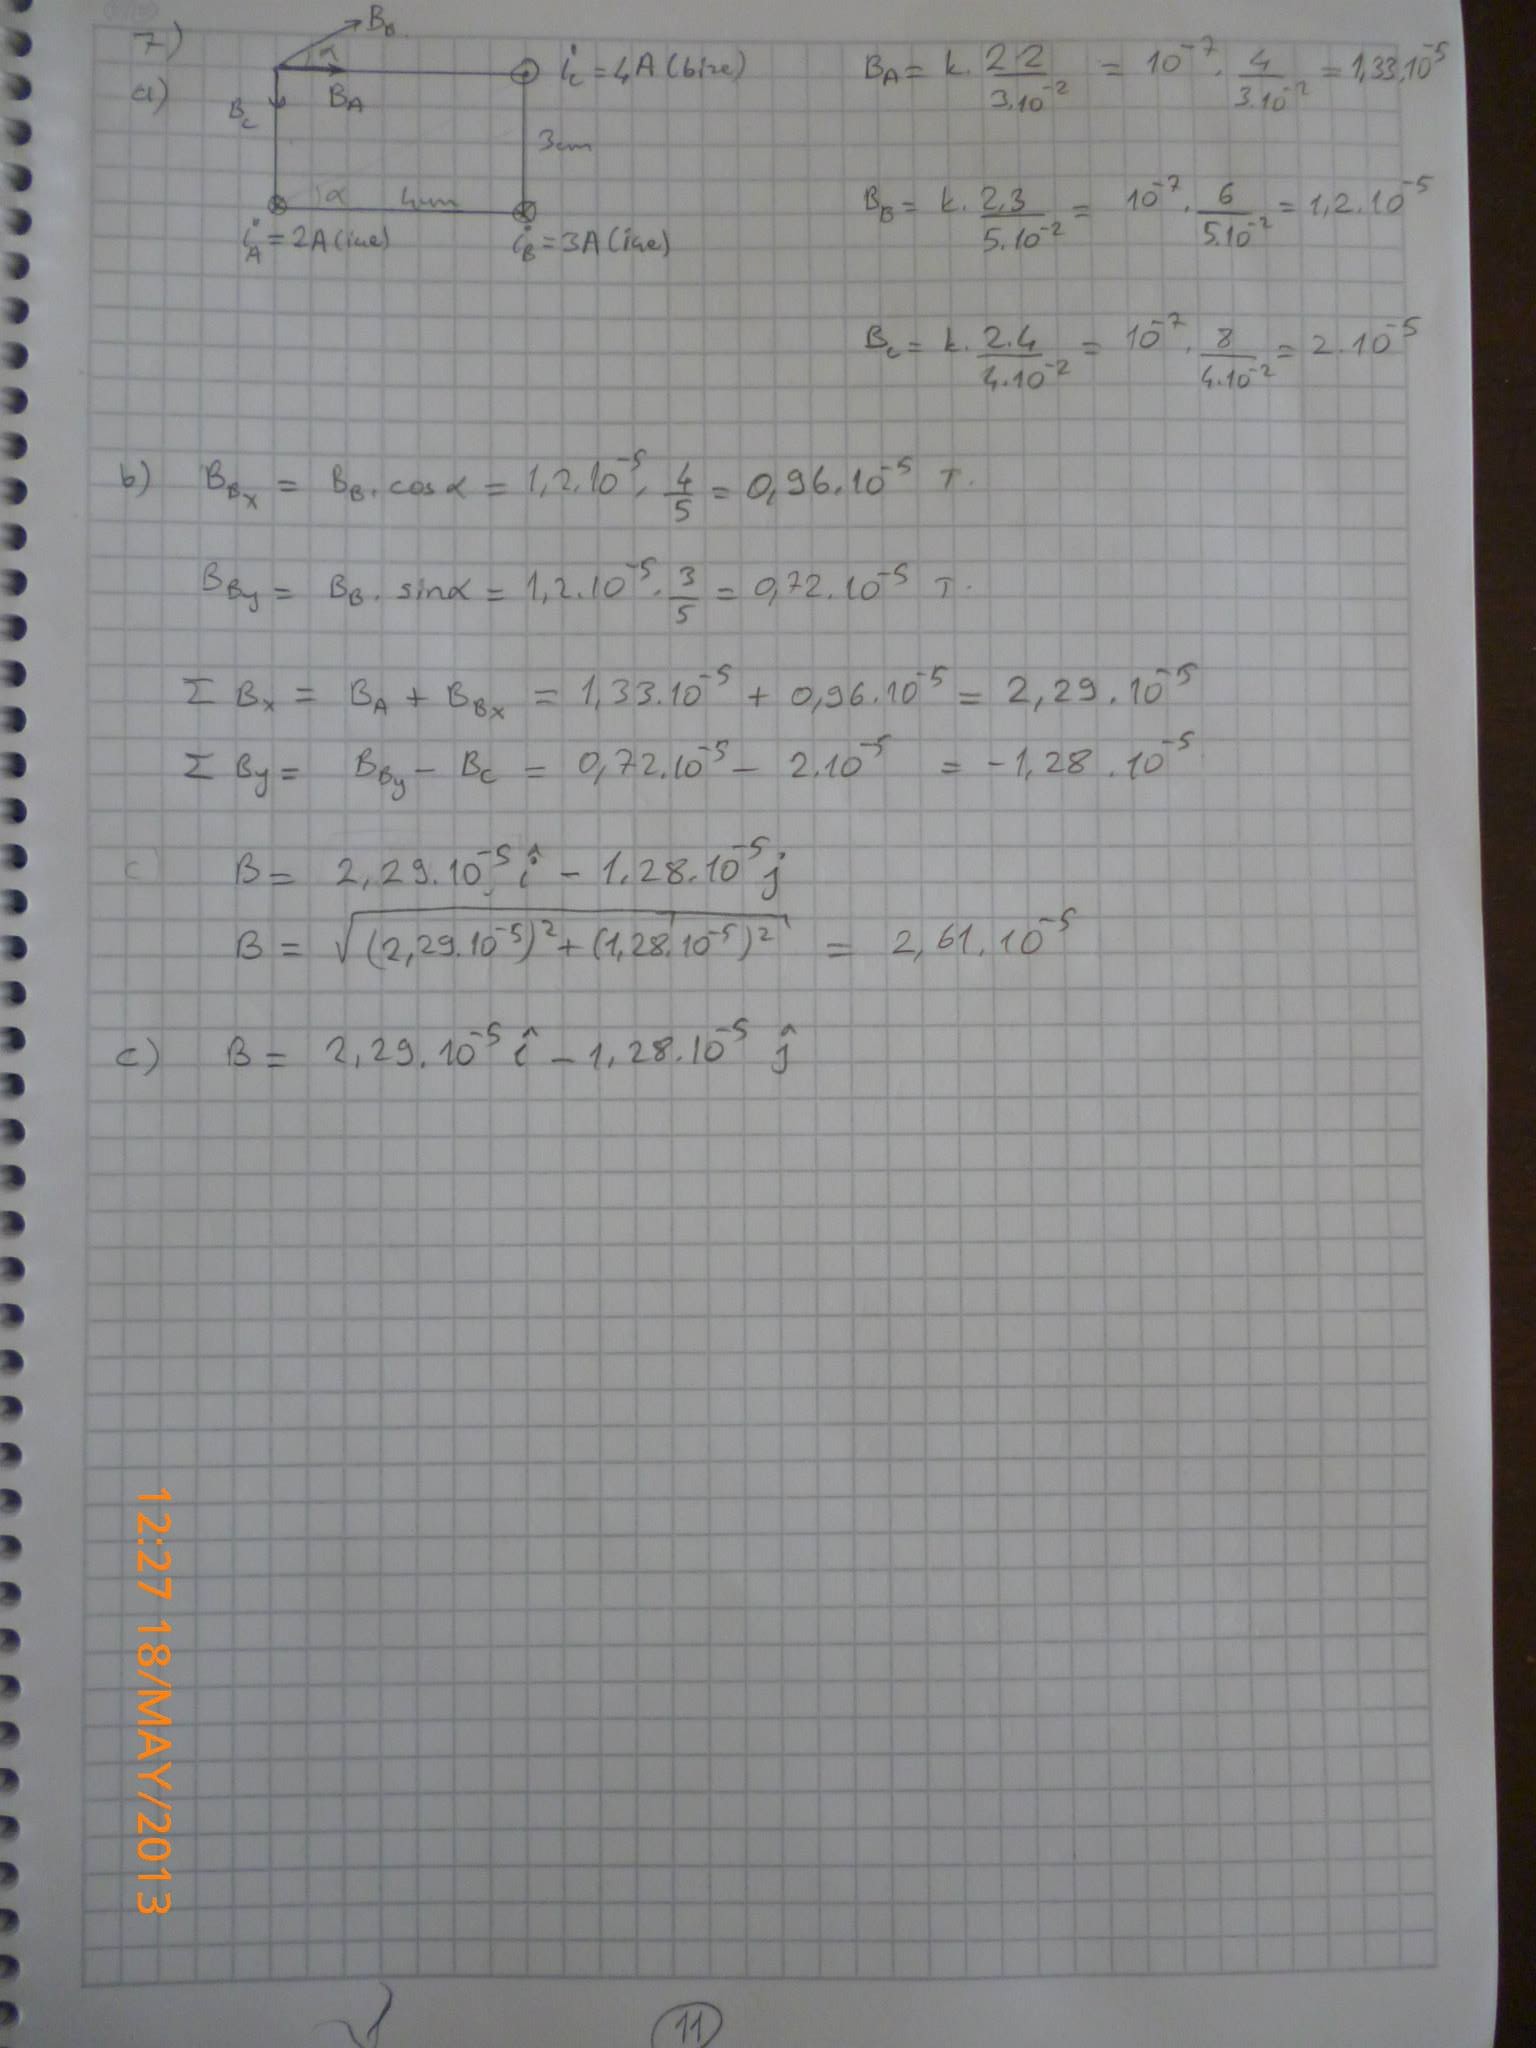 7)
a)
B_B
α
i_C = 4A (bize)
B_A
B_C
3cm
α
4cm
i_A = 2A (içe)
i_B = 3A (içe)
B_A = k. 2.2/3.10^-2 = 10^-7 . 4/3.10^-2 = 1,33.10^-5
B_B = k. 2.3/5.10^-2 = 10^-7 . 6/5.10^-2 = 1,2.10^-5
B_C = k. 2.4/4.10^-2 = 10^-7 . 8/4.10^-2 = 2.10^-5
b) B_Bx = B_B . cosα = 1,2.10^-5 . 4/5 = 0,96.10^-5 T.
B_By = B_B . sinα = 1,2.10^-5 . 3/5 = 0,72.10^-5 T.
Σ Bx = B_A + B_Bx = 1,33.10^-5 + 0,96.10^-5 = 2,29.10^-5
Σ By = B_By - B_C = 0,72.10^-5 - 2.10^-5 = -1,28.10^-5
B = 2,29.10^-5 î - 1,28.10^-5 j
B = √(2,29.10^-5)² + (1,28.10^-5)² = 2,61.10^-5
c) B = 2,29.10^-5 î - 1,28.10^-5 ĵ
12:27 18/MAY/2013
11